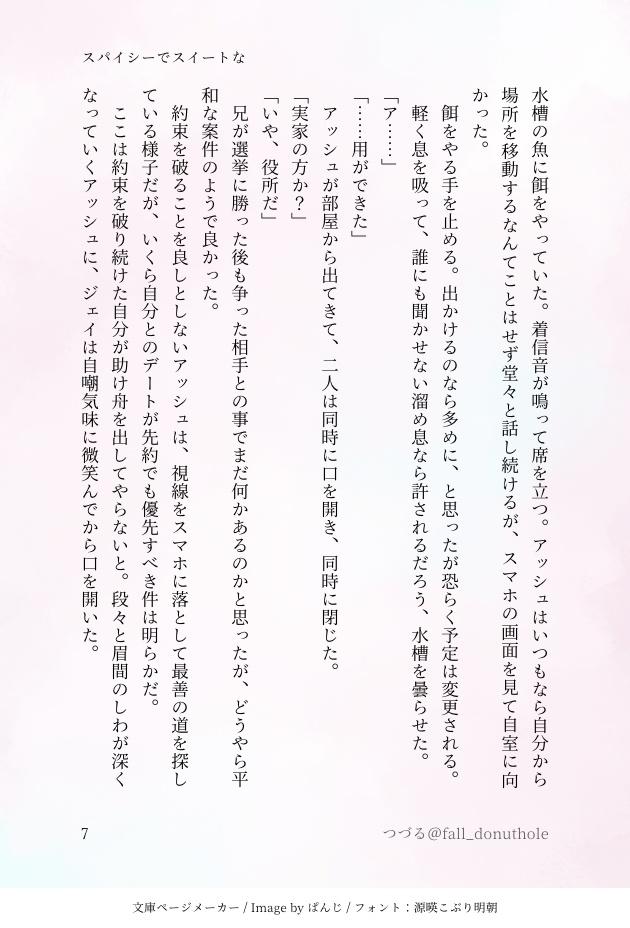 スパイシーでスイートな
水槽の魚に餌をやっていた。着信音が鳴って席を立つ。アッシュはいつもなら自分から
場所を移動するなんてことはせず堂々と話し続けるが、スマホの画面を見て自室に向
かった。
餌をやる手を止める。出かけるのなら多めに、と思ったが恐らく予定は変更される。
軽く息を吸って、誰にも聞かせない溜め息なら許されるだろう、水槽を曇らせた。
「ア……」
「……用ができた」
アッシュが部屋から出てきて、二人は同時に口を開き、同時に閉じた。
「実家の方か?」
「いや、役所だ」
兄が選挙に勝った後も争った相手との事でまだ何かあるのかと思ったが、どうやら平
和な案件のようで良かった。
約束を破ることを良しとしないアッシュは、視線をスマホに落として最善の道を探し
ている様子だが、いくら自分とのデートが先約でも優先すべき件は明らかだ。
ここは約束を破り続けた自分が助け舟を出してやらないと。段々と眉間のしわが深く
なっていくアッシュに、ジェイは自嘲気味に微笑んでから口を開いた。
7
つづる@fall_donuthole
文庫ページメーカー / Image by ぱんじ / フォント：源暎こぶり明朝